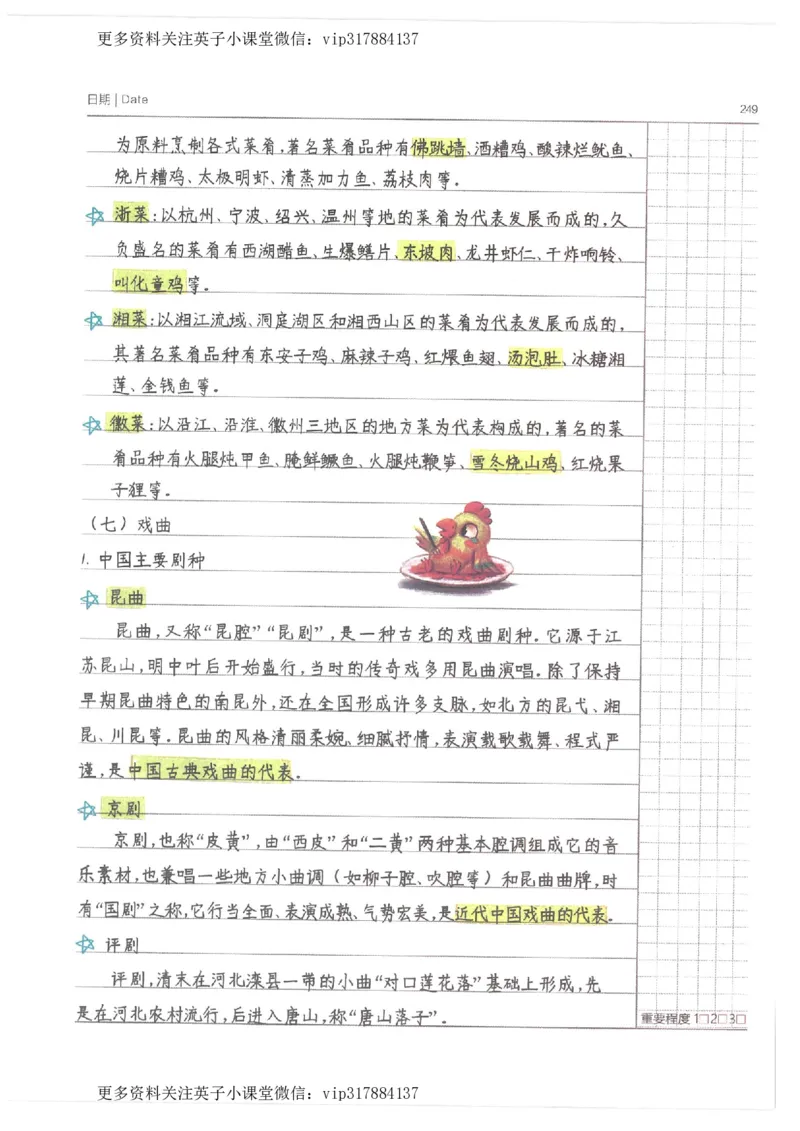 更多资料关注英子小课堂微信：vip317884137
日期 | Date
249
为原料烹制各式菜肴,著名菜肴品种有佛跳墙、酒糟鸡、酸辣烂鱿鱼、
烧片糟鸡、太极明虾、清蒸加力鱼、荔枝肉等。
浙菜:以杭州、宁波、绍兴、温州等地的菜肴为代表发展而成的,久
负盛名的菜肴有西湖醋鱼、生爆鳝片、东坡肉、龙井虾仁、干炸响铃、
叫化童鸡等。
湘菜:以湘江流域、洞庭湖区和湘西山区的菜肴为代表发展而成的,
其著名菜肴品种有东安子鸡、麻辣子鸡、红煨鱼翅、汤泡肚、冰糖湘
莲、金钱鱼等。
徽菜:以沿江、沿淮、徽州三地区的地方菜为代表构成的,著名的菜
肴品种有火腿炖甲鱼、腌鲜鳜鱼、火腿炖鞭笋、雪冬烧山鸡、红烧果
子狸等。
（七）戏曲
1. 中国主要剧种
昆曲
昆曲,又称“昆腔”“昆剧”,是一种古老的戏曲剧种。它源于江
苏昆山,明中叶后开始盛行,当时的传奇戏多用昆曲演唱。除了保持
早期昆曲特色的南昆外,还在全国形成许多支脉,如北方的昆弋、湘
昆、川昆等。昆曲的风格清丽柔婉、细腻抒情,表演载歌载舞、程式严
谨,是中国古典戏曲的代表。
京剧
京剧,也称“皮黄”,由“西皮”和“二黄”两种基本腔调组成它的音
乐素材,也兼唱一些地方小曲调（如柳子腔、吹腔等）和昆曲曲牌,时
有“国剧”之称,它行当全面、表演成熟、气势宏美,是近代中国戏曲的代表。
评剧
评剧,清末在河北滦县一带的小曲“对口莲花落”基础上形成,先
是在河北农村流行,后进入唐山,称“唐山落子”。
重要程度 1□2□3□
更多资料关注英子小课堂微信：vip317884137